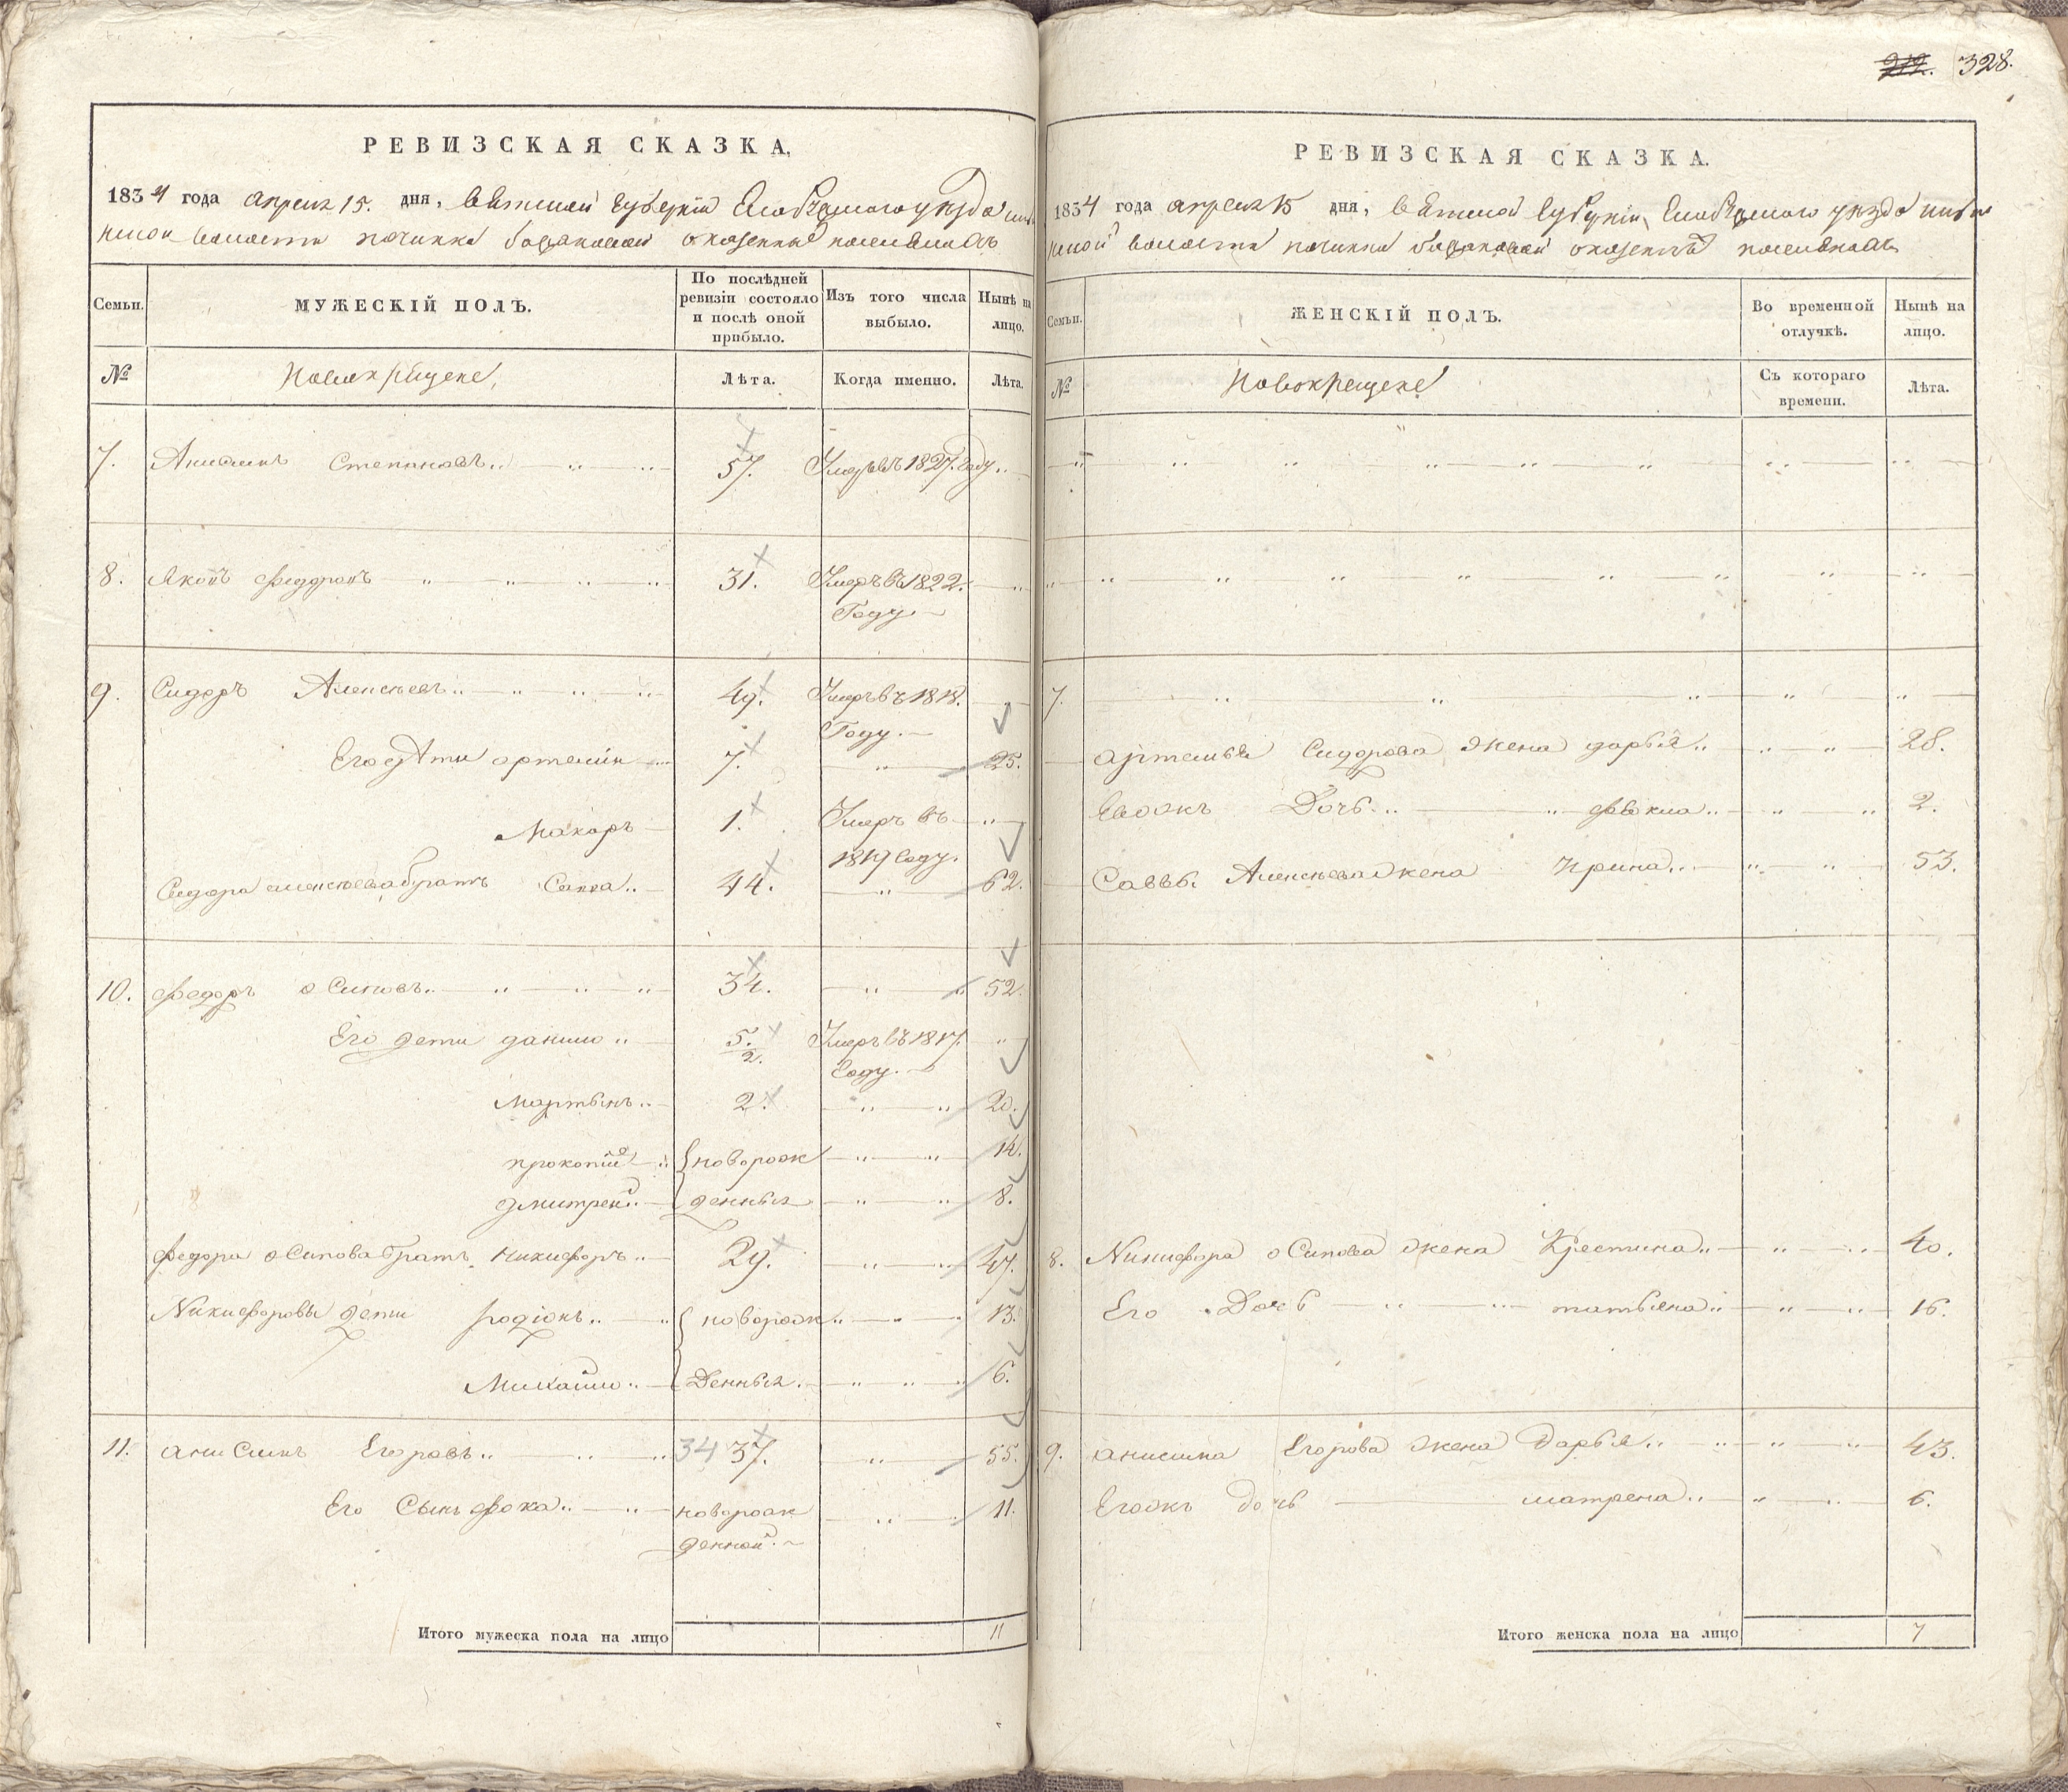 328.
РЕВИЗСКАЯ СКАЗКА.
1834 года апреля 15. дня, Вятской губернии Елабужского уезда
волости починка о казенных поселянахъ
Семьи.
МУЖЕСКІЙ ПОЛЪ.
По послѣдней ревизіи состояло и послѣ оной прибыло.
Изъ того числа выбыло.
Нынѣ на лицо.
№
Новокрещене,
Лѣта.
Когда именно.
Лѣта.
7. Анисимъ Степановъ 57. Умеръ въ 1827. году
8. Яковъ Федоровъ 31. Умеръ въ 1822.
Году
9. Сидоръ Алексѣевъ 49. Умеръ въ 1818.
Году.
Его дѣти Артемій 7. 25.
Макаръ 1. Умеръ въ
1819 году.
Сидора Алексѣева братъ Савва 44. 62.
10. Федоръ Осиповъ 34. 52.
Его дети Данило 5. Умеръ въ 1817.
2. году.
Мартынъ 2. 20.
Прокопій новорож 14.
Дмитрей денныя 8.
Федора Осипова братъ Никифоръ 29. 47.
Никифоровы дети Родіонъ новорож 13.
Михайло денныя. 6.
11. Анисимъ Егоровъ 34 37. 55.
Его сынъ Фока новорож 11.
денной.
Итого мужеска пола на лицо 11
РЕВИЗСКАЯ СКАЗКА.
1834 года апреля 15 дня, Вятской губерніи Елабужского уезда
волости починка о казенныхъ поселянахъ
Семьи.
ЖЕНСКІЙ ПОЛЪ.
Во временной отлучкѣ.
Нынѣ на лицо.
№
Новокрещене
Съ котораго времени.
Лѣта.
7.
Артемья Сидорова жена Дарья 28.
Евожъ Дочь Фекла 2.
Саввы Алексѣева жена Ирина 53.
8. Никифора Осипова жена Крестина 40.
Его Дочь Татьяна 16.
9. Анисима Егорова жена Дарья 43.
Егожъ дочь Матрена 6.
Итого женска пола на лицо 7